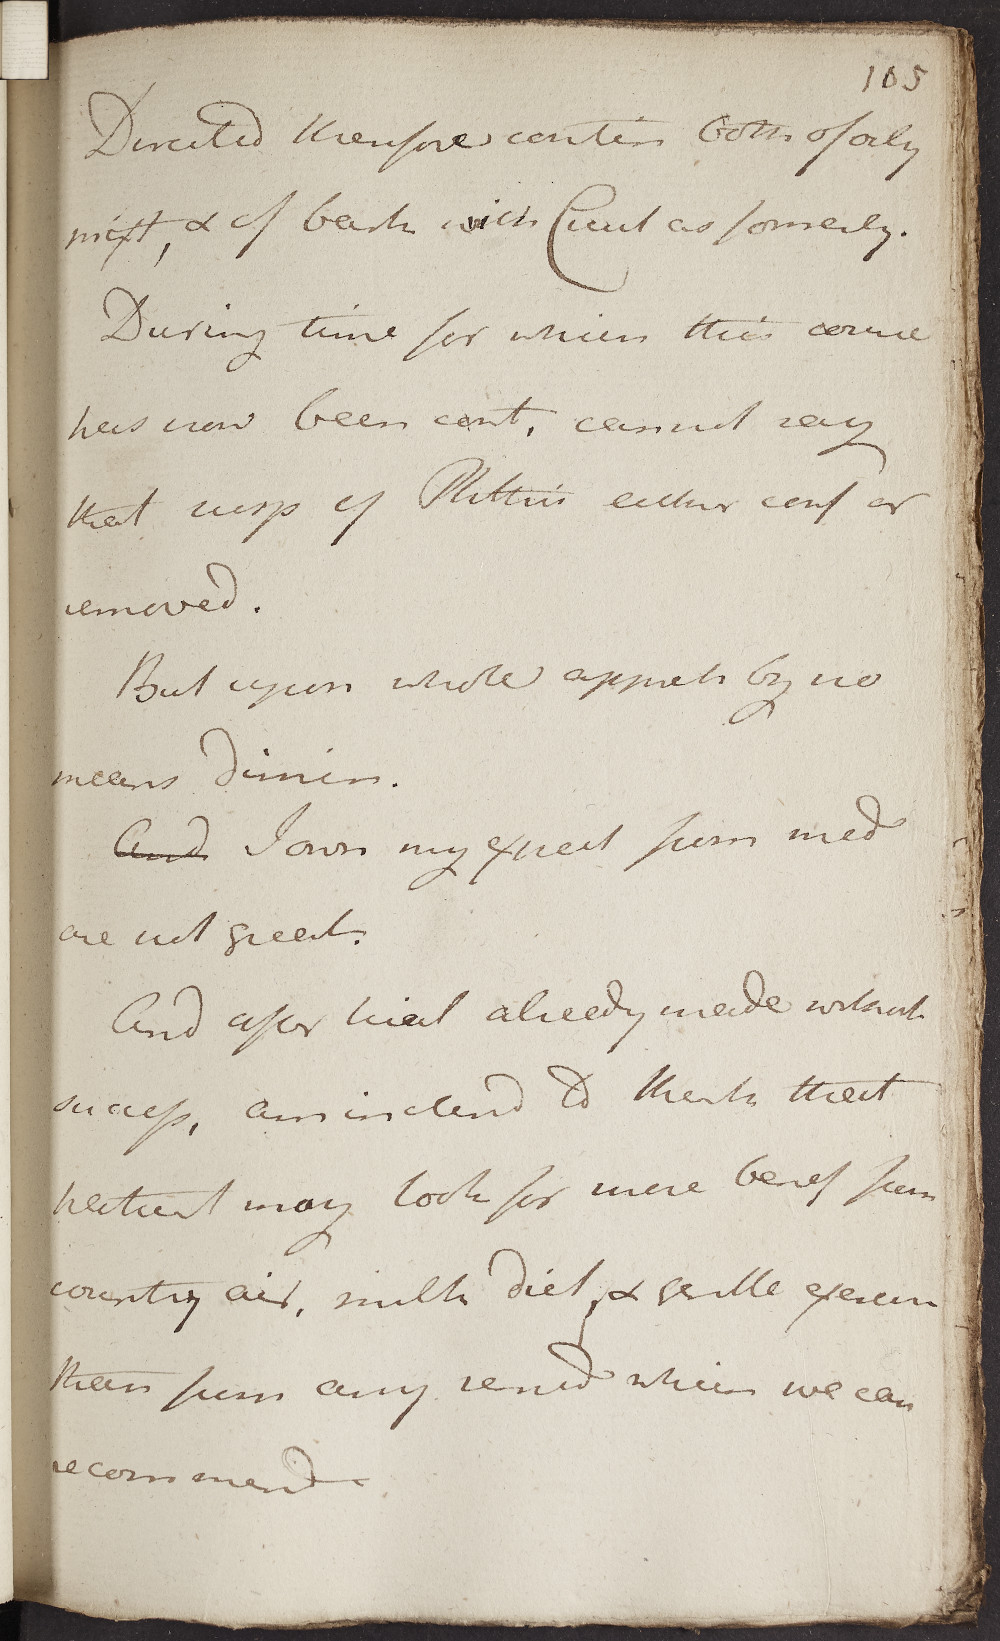 105
Directed therefore contin both of oily
mixt, & of bark with Cicut as formerly.
During time for which this course
has now been cont, cannot say
that susp of Phthis either conf or
removed.
But upon whole appreh by no
means dimin.
And I own my expect from med
are not great.
And after trial already made without
success, am inclend to think that
patient may look for more benef from
country air, milk diet, & gentle exercise
than from any remed which we can
recommend